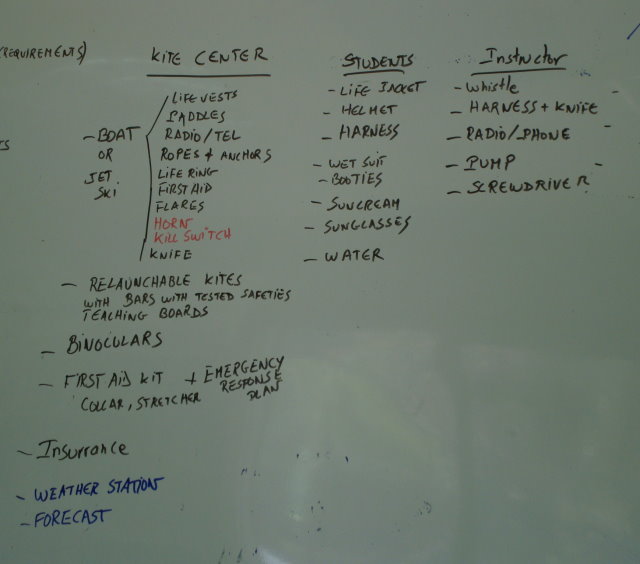 (REQUIREMENTS)
KITE CENTER
- BOAT
OR
JET
SKI
LIFE VESTS
PADDLES
RADIO/TEL
ROPES + ANCHORS
LIFE RING
FIRST AID
FLARES
HORN
KILL SWITCH
KNIFE
- RELAUNCHABLE KITES
WITH BARS WITH TESTED SAFETIES
TEACHING BOARDS
- BINOCULARS
- FIRST AID KIT + EMERGENCY
RESPONSE
PLAN
COLLAR, STRETCHER
- Insurrance
- WEATHER STATION
- FORECAST
STUDENTS
- LIFE JACKET
- HELMET
- HARNESS
- WET SUIT
- BOOTIES
- SUNCREAM
- SUNGLASSES
- WATER
Instructor
- Whistle
- HARNESS + KNIFE
- RADIO/PHONE
- PUMP
- SCREWDRIVER